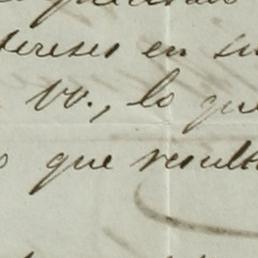 tereses en su
VV., lo que
o que result